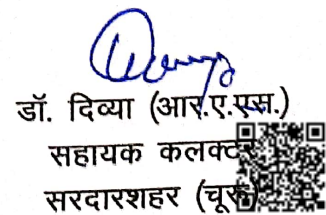 डॉ. दिव्या (आर.ए.एस.)
सहायक कलक्टर
सरदारशहर (चूरू)